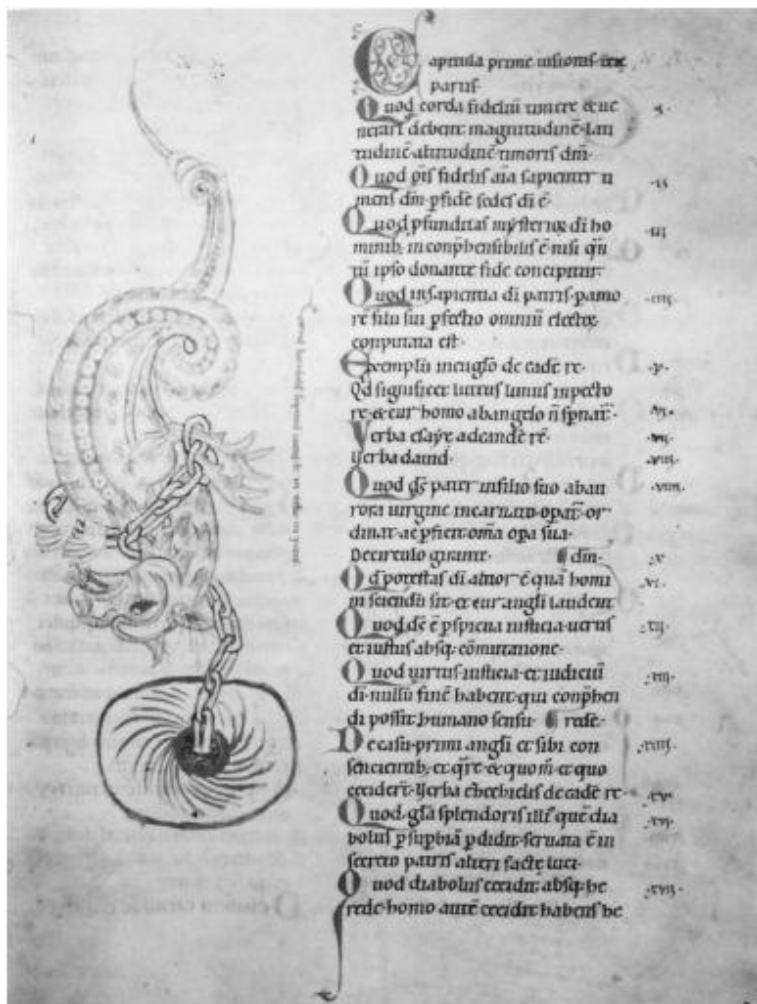 Capitula prime uisionis tercie
partis.
Quod corda fideliū timere & ue
nerari debent magnitudinē lati
tudinē altitudinē timoris dn̄i. .i.
Quod om̄is fidelis aīa sapienter ti
mens dm̄ p fidē sedes di ē. .ii.
Quod p̄funditas mysterioꝝ di ho
minib; incon̄phensibilis ē nisi q̄n
tū ipso donante fide concipitur. .iii.
Quod in sapientia di patris p amo
rē filii sui p̄fectio omniū electoꝝ
conputata est. .iiii.
Exemplū in eugl̄o de eadē re. .v.
Qd significet luteus limus in pecto
re & cur homo ab angelo n̄ spnat̄. .vi.
Verba esaye ad eandē rē. .vii.
Verba dauid. .viii.
Quod ds̄ pater in filio suo ab au
rora uirgine incarnato opat̄ or
dinat ac p̄ficit om̄a opa sua. .viiii.
De circulo girante. dm̄. .x.
Qd potestas di altior ē quā homi
ni sciendū sit et cur angli laudent .xi.
Quod ds̄ ē p̄spicua iusticia uerus
et iustus absq; cōmutatione. .xii.
Quod uirtus iusticia et iudiciū
di nullū finē habent qui con̄phen
di possit humano sensu. rede. .xiii.
De casu primi angli et sibi con
sencientib; et q̄re & quom̄ et quo
ceciderī. .xiiii.
Verba ezechielis de eadē re .xv.
Quod gl̄a splendoris illi quē dia
bolus p̄ supbiā p̄didit seruata ē in
secreto patris alteri factę luci. .xvi.
Quod diabolus cecidit absq; he
rede homo autē cecidit habens he .xvii.